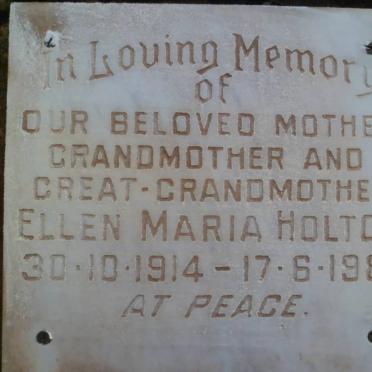 In Loving Memory
of
OUR BELOVED MOTHE
GRANDMOTHER AND
GREAT-GRANDMOTHE
ELLEN MARIA HOLTO
30·10·1914 – 17·6·198
AT PEACE.